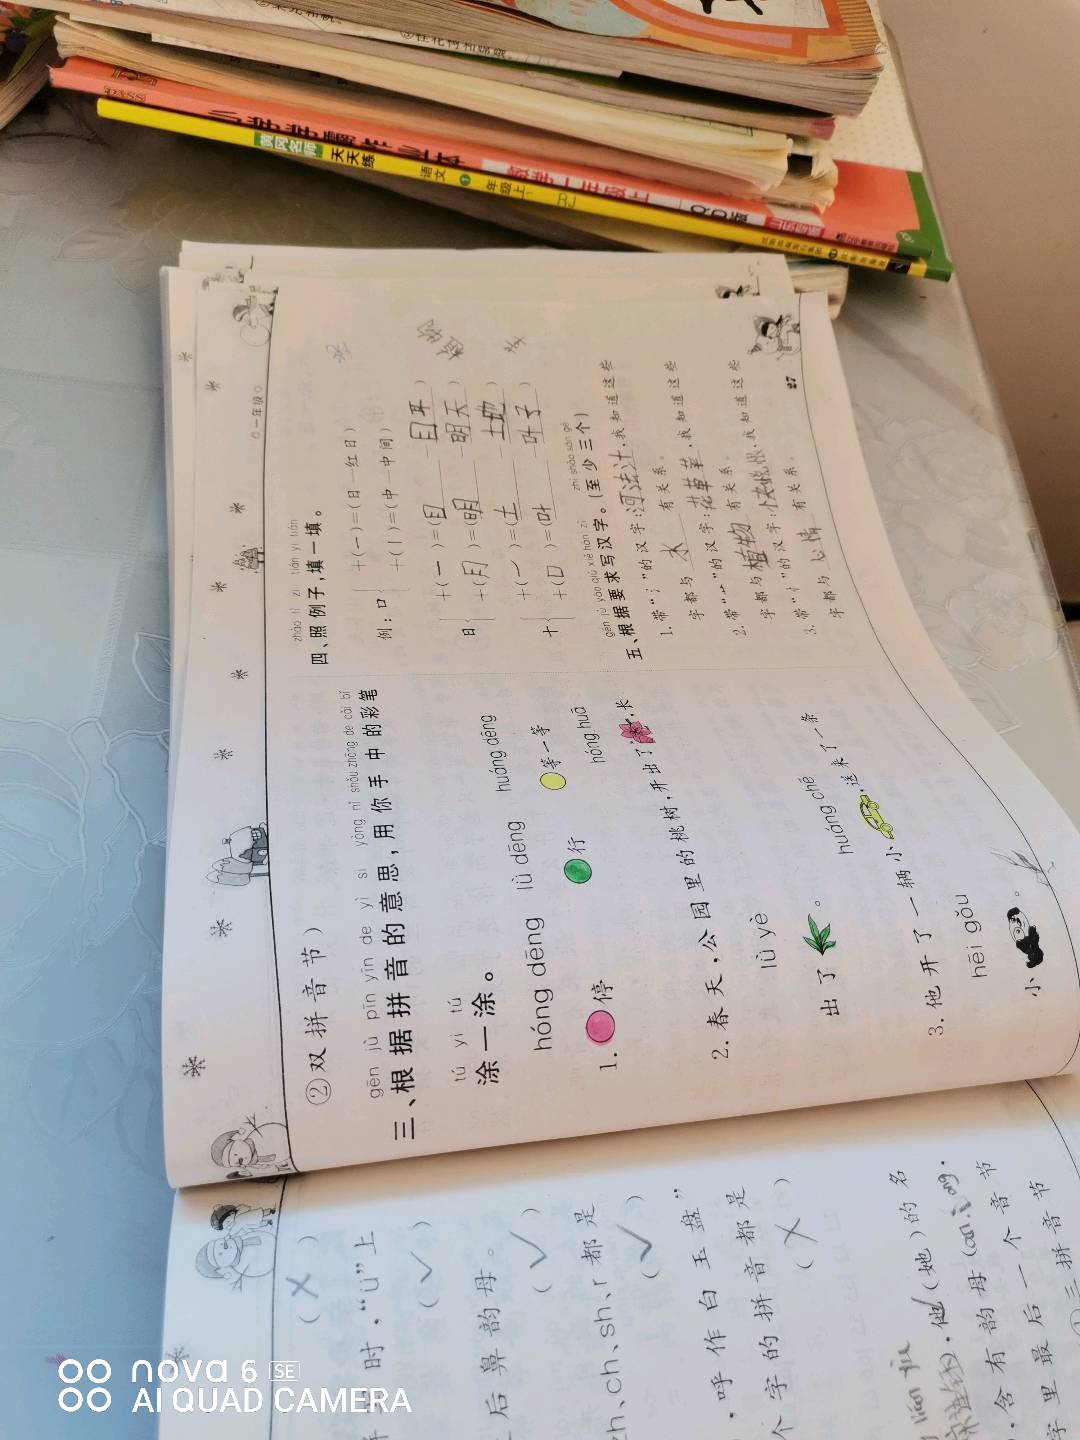 黄冈名师
天天练
语文
一年级上
数学一年级上
一年级
②双拼音节)
gēn jù pīn yīn de yì si yòng nǐ shǒu zhōng de cǎi bǐ
三、根据拼音的意思,用你手中的彩笔
tú yi tú
涂一涂。
hóng dēng lǜ dēng huáng dēng
1. 停 行 等一等
hóng huā
2. 春天,公园里的桃树,开出了 ,长
lǜ yè
出了 。
huáng chē
3. 他开了一辆小 ,送来了一条
hēi gǒu
小 。
zhào lì zi tián yi tián
四、照例子,填一填。
例:口 +(一)=(日—红日)
+(丨)=(中—中间)
日 +(一)=(目 目耳)
+(月)=(明 明天)
十 +(一)=(土 土地)
+(口)=(叶 叶子)
gēn jù yāo qiú xiě hàn zì zhì shǎo sān gè
五、根据要求写汉字。(至少三个)
1. 带“氵”的汉字:河法汁,我知道这些
字都与 水 有关系。
2. 带“艹”的汉字:花草菜,我知道这些
字都与 植物 有关系。
3. 带“忄”的汉字:快悦恨,我知道这些
字都与 心情 有关系。
27
(×)
时,“ü”上
(√)
后鼻韵母。
(√)
zh、ch、sh、r都是
(√)
,呼作白玉盘”
个字的拼音都是
(×)
,他(她)的名
,含有韵母(an.iong.
字里最后一个音节
三拼音节
nova 6 SE
AI QUAD CAMERA